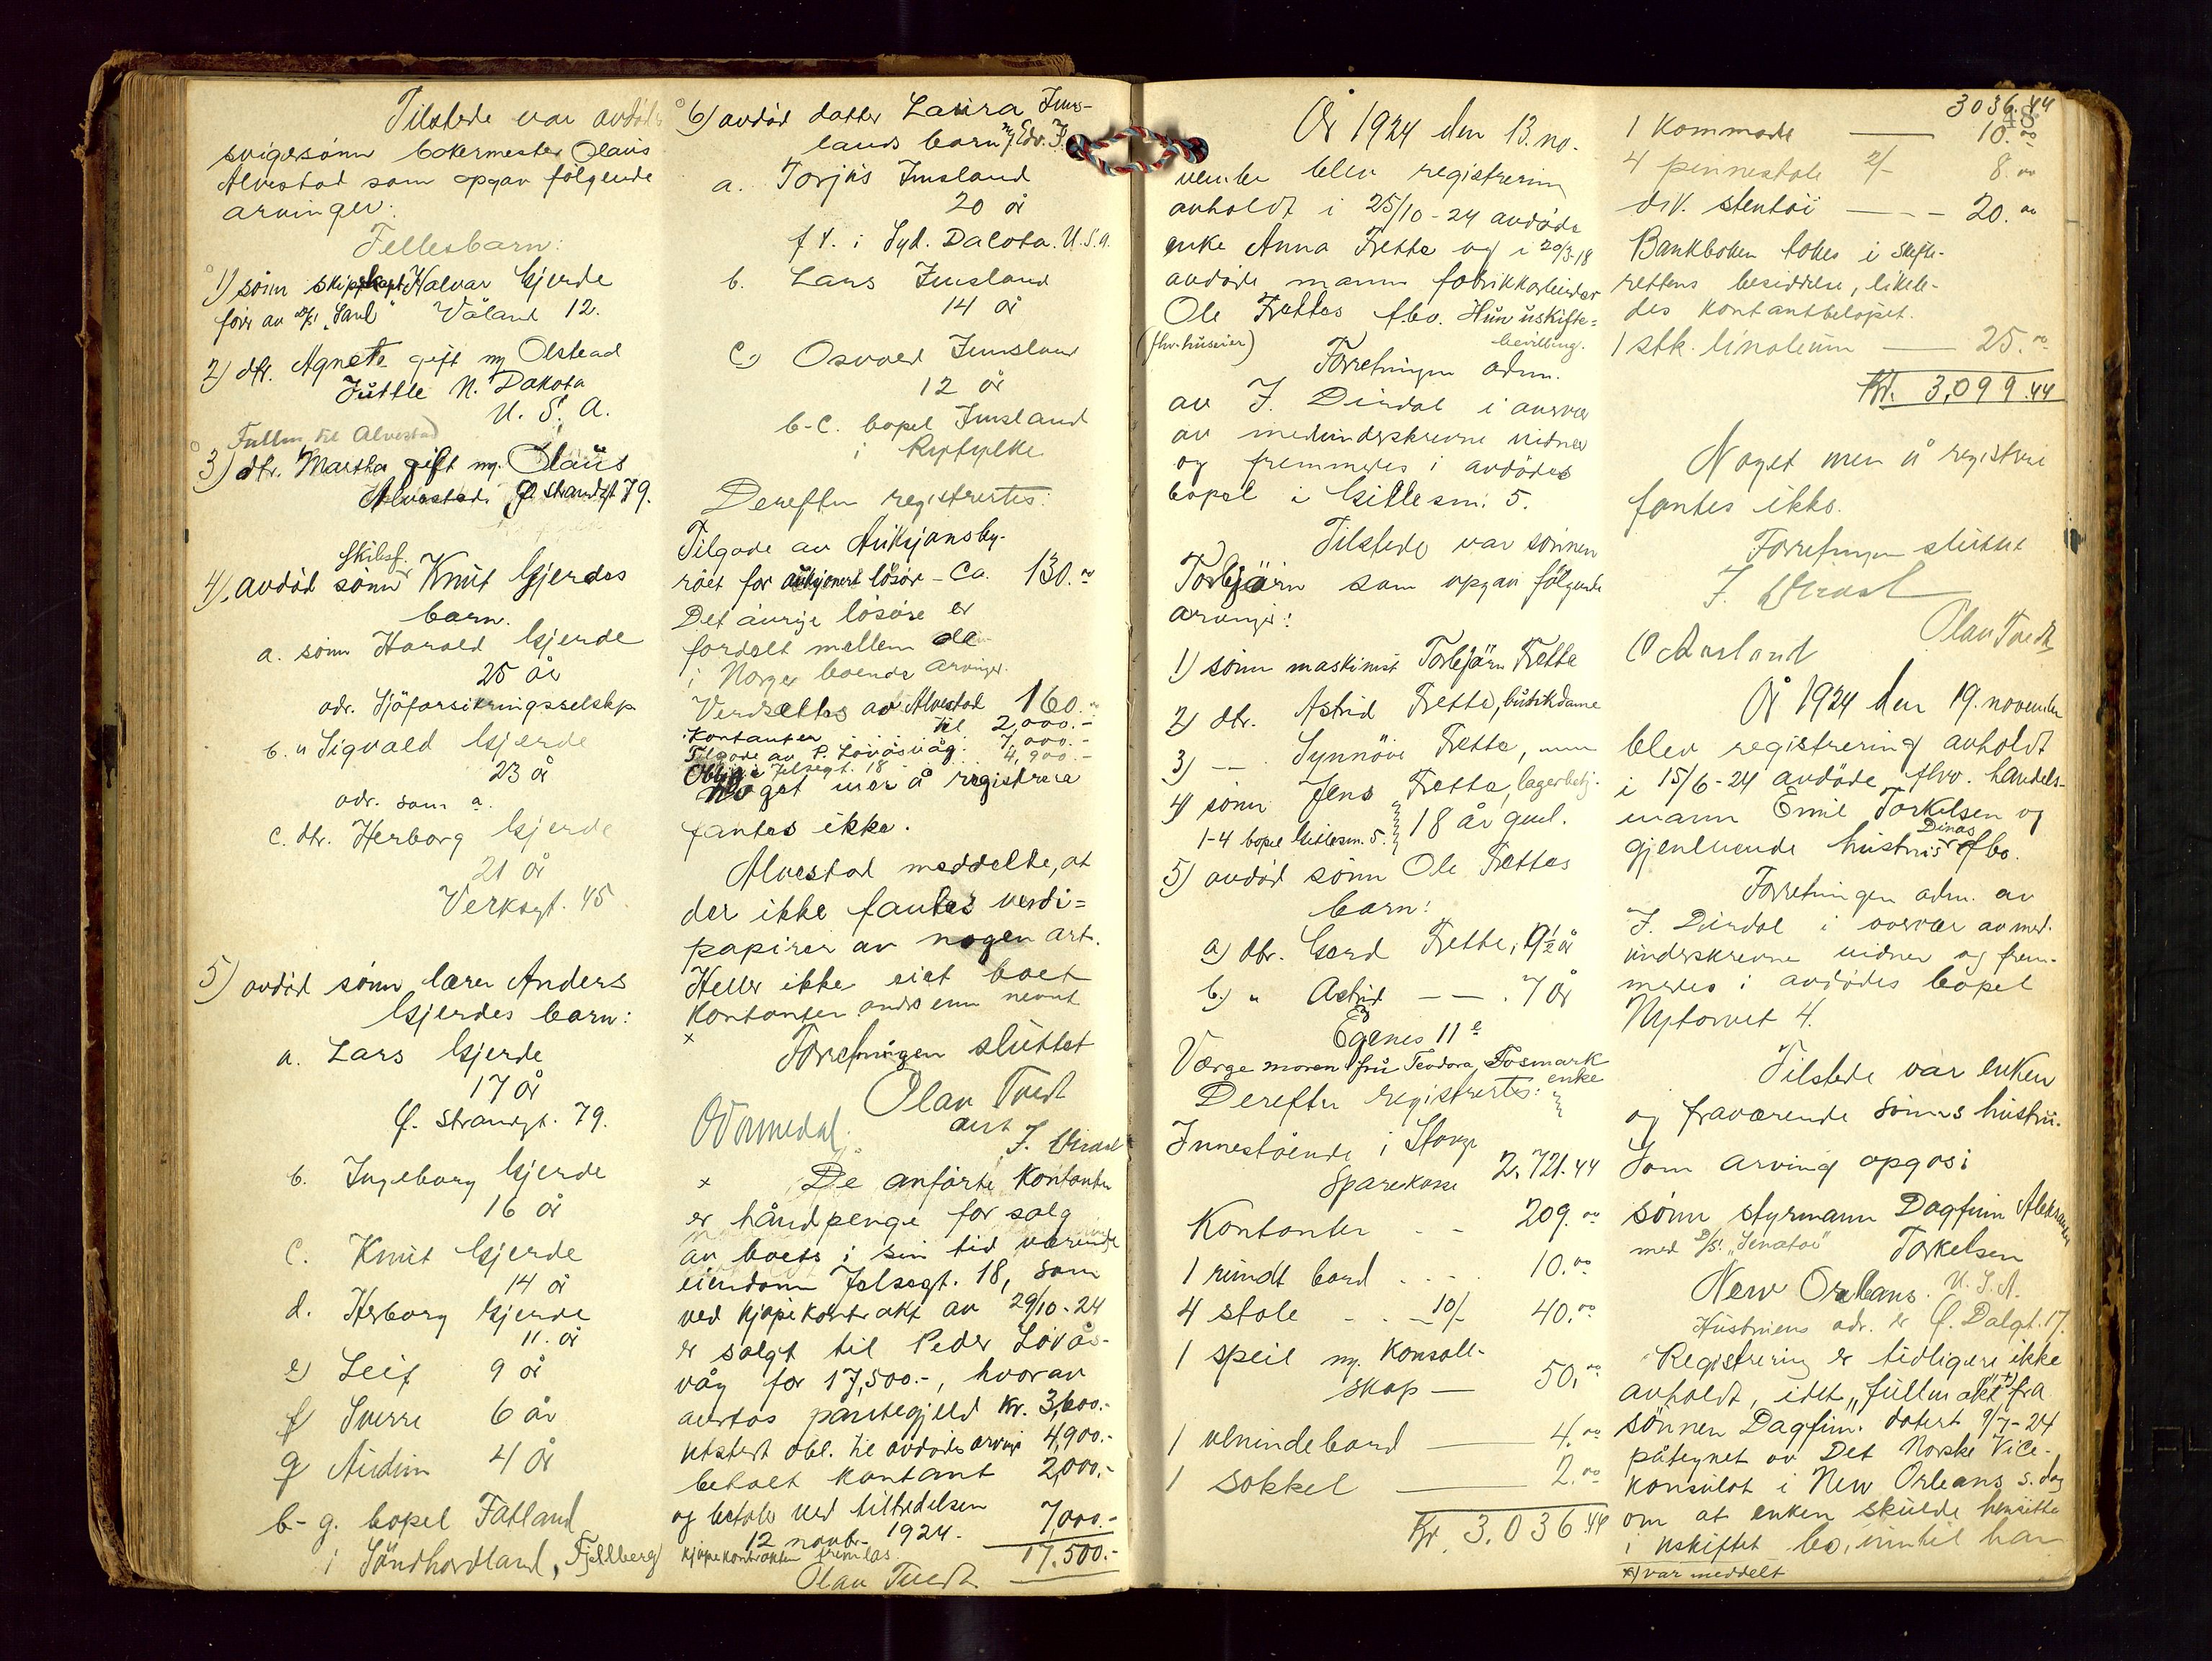 Tilstede var avdødes
svigersønn bakermester Olaus
Alvestad som opgav følgende
arvinger:
Fellesbarn:
1) sønn skipskapt Halvar Gjerde
fører av D/S! "Saul" Våland 12.
2) dtr. Agnete gift m/ Olstead
Tuttle N. Dakota
U. S. A.
Fullm. til Alvestad
3) dtr. Martha gift m/ Olaus
Alvestad. Ø. Strandgt 79.
4) avdød sønn Knut Gjerdes
barn.
a. sønn Harald Gjerde
25 år
adr. Sjøforsikringsselskp
b. " Sigvald Gjerde
23 år
adr. som a.
c. dtr. Herborg Gjerde
21 år
Verksgt. 45
5) avdød sønn lærer Anders
Gjerdes barn:
a. Lars Gjerde
17 år
Ø. Strandgt. 79.
b. Ingeborg Gjerde
16 år
c. Knut Gjerde
14 år
d. Herborg Gjerde
11. år
e) Leif 9 år
f Sverre 6 år
g Audun 4 år
b-g. bopel Fatland
i Søndhordland, Fjellberg
6) avdød datter Laura Ims-
lands barn m/ Edv. I.
a. Torjus Imsland
20 år
f. t. i Syd. Dacota. U.S.A.
b. Lars Imsland
14 år
c.) Osvald Imsland
12 år
b-c. bopel Imsland
i Ryfylke
Derefter registrertes:
Tilgode av Auksjonsby-
rået for auksjonert løsøre - Ca. 130.00
Det øvrige løsøre er
fordelt mellem de
i Norge boende arvinger.
Verdsettes av Alvestad 160.
til
Kontanter 2,000.-
Tilgode av P. Lovåsvåg: 7,000.-
Oblig. i Jelsegt. 18 4,900.-
Noget mer å registrere
fantes ikke.
Alvestad meddelte, at
der ikke fantes verdi=
papirer av nogen art.
Heller ikke eiet boet
Kontanter andre enn nevnt
x Forretningen sluttet
Olav Tvedt
J. Dirdal
x De anførte Kontanter
er håndpenge for salg
av boets i sin tid værende
eiendom Jelsegt. 18, som
ved kjøpekontrakt av 29/10-24
er solgt til Peder Lovås-
våg for 17,500.-, hvorav
avertas pantegjeld kr. 3,600.-
utstedt obl. til avdødes arvinger 4,900.-
betalt kontant 2,000.-
og betaler ved tiltredelsen
12 novbr. 1924. 7,000.-
kjøpekontrakten fremlas. 17.500.-
Olav Tvedt
År 1924 den 13. no-
vember blev registrering
avholdt i 25/10-24 avdøde
enke Anna Frette og i 20/3-18
avdøde mann fabrikkarbeider
Ole Frettes f.bo. Hun uskifte=
bevilling.
(fhv. huseier)
Forretningen adm.
av J. Dirdal i overvær
av medunderskrevne vidner
og fremmedes i avdødes
bopel i Gillesm. 5.
Tilstede var sønnen
Torbjørn som opgav følgende
arvinger:
1) sønn maskinist Torbjørn Frette
2) dtr. Astrid Frette, butikdame
3) — Synnøve Frette,
4) sønn Jens Frette, lagerbetj.
18 år gml.
1-4 bopel Gillesm. 5.
5) avdød sønn Ole Frettes
barn:
a) dtr. Gerd Frette, 9½ år
b) " Astrid — — . 7 år
Egenes 11 e
Værge moren fru Teodora Fosmark
enke
Derefter registrertes:
Innestående i Stavgr
Sparekasse 2.721.44
Kontanter - - 209.00
1 rundt bord . . - . 10.00
4 stole - . - 10/- 40.00
1 speil m/ konsoll-
skap — 50.00
1 vinduebord — 4.00
1 sokkel — 2.00
Kr. 3.036.44
3036.44
48
1 Kommode — 10.00
4 pinnestole 2/- 8.00
div. stentøi — - - 20.00
Bankboken tokes i skifte-
rettens besiddelse, likele-
des kontantbeløpet.
1 stk. linoleum — 25.00
Kr. 3,099.44
Noget mer å registrere
fantes ikke.
Forretningen sluttet
J. Dirdal
Olav Tvedt
O Aarland
År 1924 den 19. november
blev registrering avholdt
i 15/6-24 avdøde, fhv. handels-
mann Emil Torkelsen og
gjenlevende hustru Dinas f.bo.
Forretningen adm. av
J. Dirdal i overvær av med-
underskrevne vidner og frem-
medes i avdødes bopel
Nytorvet 4.
Tilstede var enken
og fraværende sønns hustru.
Som arving opgas:
sønn styrmann Dagfinn Aleksander
med D/S! "Senator" Torkelsen
New Orleans. U. S. A.
Hustruens adr. er Ø. Dalgt. 17.
Registrering er tidligere ikke
avholdt, idet "fullmakt" x) fra
sønnen Dagfinn. datert 9/7-24
påtegnet av Det Norske Vice-
konsulat i New Orleans s. dag
om at enken skulde hensitte
i uskiftet bo, inntil han
x) var meddelt